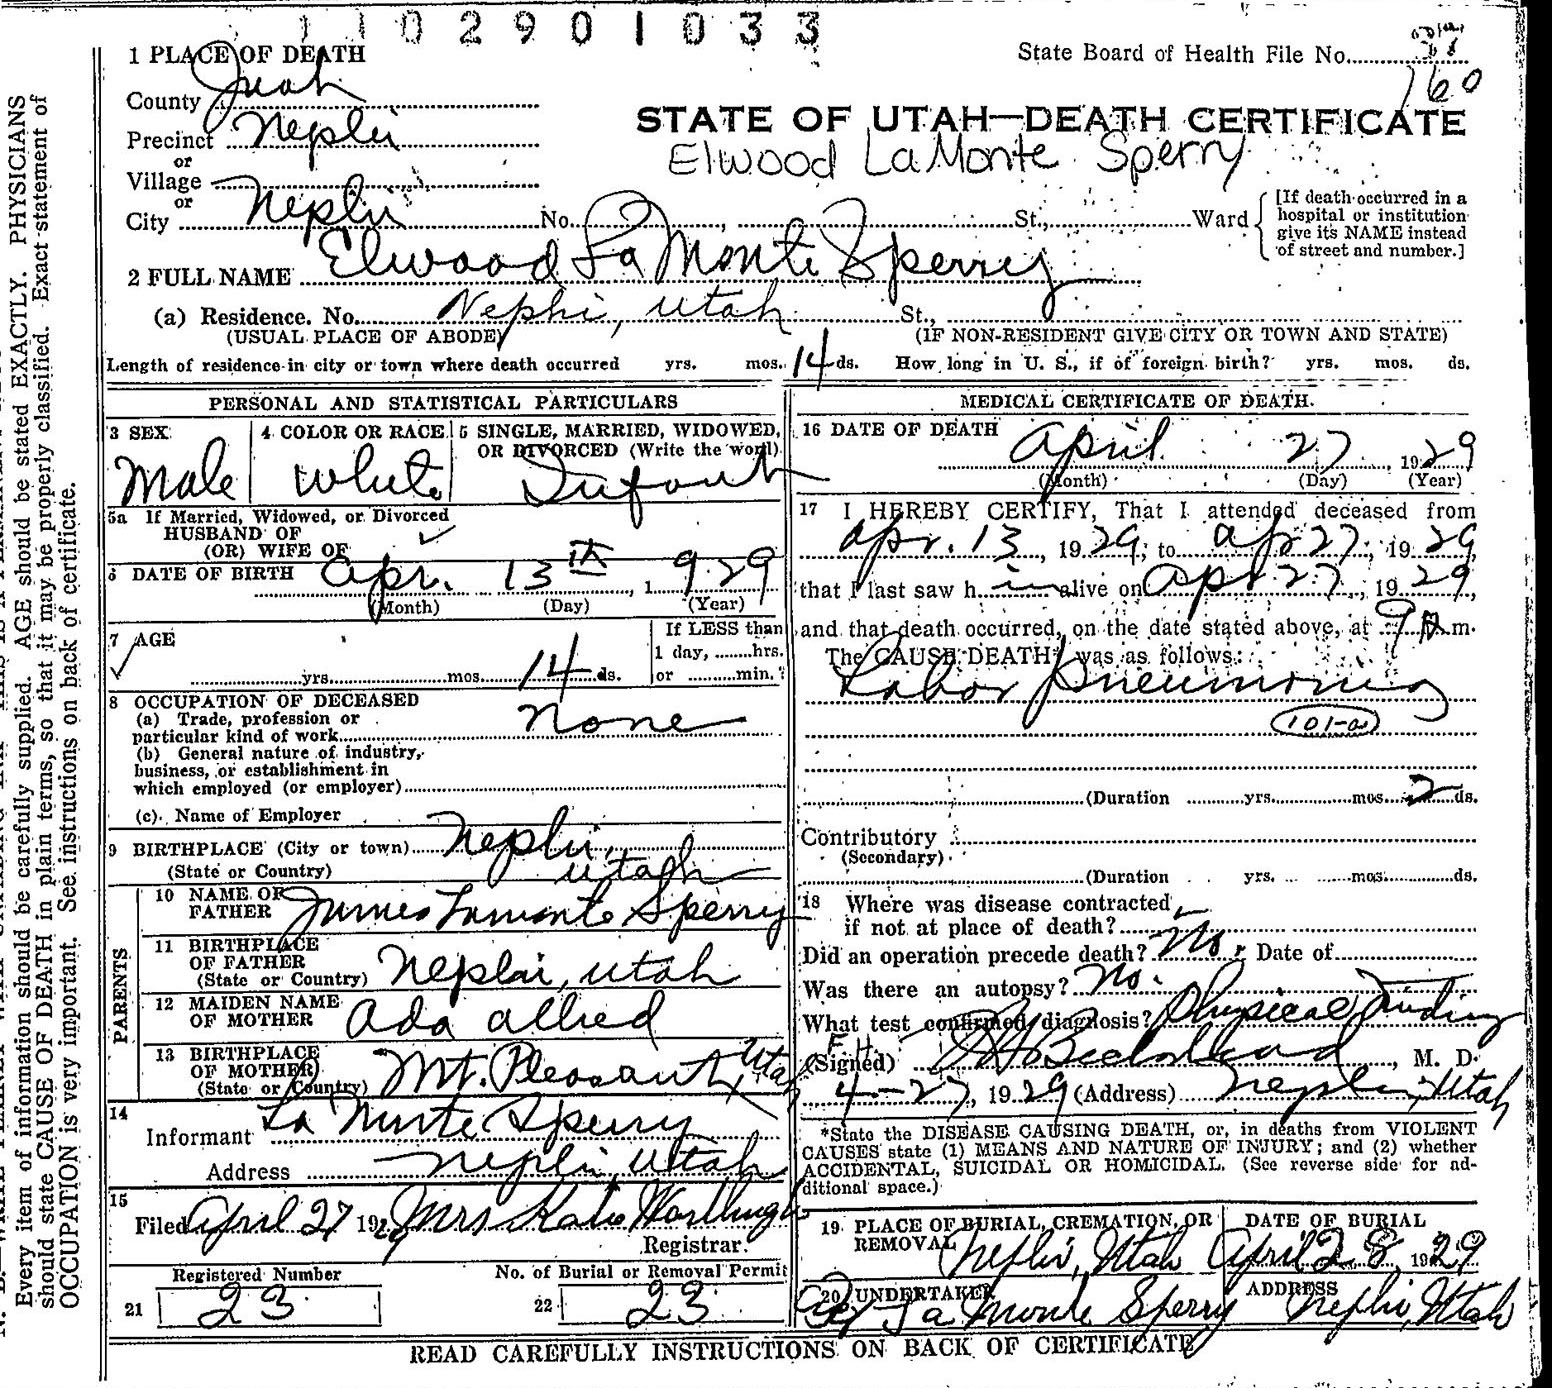 1 1 0 2 9 0 1 0 3 3
1 PLACE OF DEATH
State Board of Health File No.
160
County Juab
STATE OF UTAH—DEATH CERTIFICATE
Precinct Nephi
Elwood LaMonte Sperry
or
Village
or
City Nephi No. , St., Ward
[If death occurred in a
hospital or institution
give its NAME instead
of street and number.]
2 FULL NAME Elwood La Monte Sperry
(a) Residence. No. Nephi, Utah St.,
(USUAL PLACE OF ABODE) (IF NON-RESIDENT GIVE CITY OR TOWN AND STATE)
Length of residence in city or town where death occurred yrs. mos. 14 ds. How long in U. S., if of foreign birth? yrs. mos. ds.
PERSONAL AND STATISTICAL PARTICULARS
3 SEX
Male
4 COLOR OR RACE
White
5 SINGLE, MARRIED, WIDOWED,
OR DIVORCED (Write the word)
Infant
5a If Married, Widowed, or Divorced
HUSBAND OF
(OR) WIFE OF
6 DATE OF BIRTH Apr. 13th, 1929
(Month) (Day) (Year)
7 AGE
yrs. mos. 14 ds.
If LESS than
1 day, ........hrs.
or .........min.
8 OCCUPATION OF DECEASED
(a) Trade, profession or
particular kind of work None
(b) General nature of industry,
business, or establishment in
which employed (or employer)
(c) Name of Employer
9 BIRTHPLACE (City or town) Nephi,
(State or Country) Utah
PARENTS
10 NAME OF
FATHER James Lamonte Sperry
11 BIRTHPLACE
OF FATHER
(State or Country) Nephi, Utah
12 MAIDEN NAME
OF MOTHER Ada Allred
13 BIRTHPLACE
OF MOTHER
(State or Country) Mt. Pleasant, Utah
14
Informant La Monte Sperry
Address Nephi Utah
15
Filed April 27 1929 Mrs Kate Worthington
Registrar.
Registered Number
21 23
No. of Burial or Removal Permit
22 23
MEDICAL CERTIFICATE OF DEATH.
16 DATE OF DEATH April 27, 1929
(Month) (Day) (Year)
17 I HEREBY CERTIFY, That I attended deceased from
Apr. 13, 1929, to Apr 27, 1929,
that I last saw h im alive on Apr 27, 1929,
and that death occurred, on the date stated above, at 9 A m.
The CAUSE DEATH* was as follows:
Lobar Pneumonia
101-a
(Duration yrs. mos. 2 ds.
Contributory
(Secondary)
(Duration yrs. mos. ds.
18 Where was disease contracted,
if not at place of death?
Did an operation precede death? No. Date of
Was there an autopsy? No.
What test confirmed diagnosis? Physical Finding
F H
(Signed) , M. D.
4-27, 1929 (Address) Nephi, Utah
*State the DISEASE CAUSING DEATH, or, in deaths from VIOLENT
CAUSES state (1) MEANS AND NATURE OF INJURY; and (2) whether
ACCIDENTAL, SUICIDAL OR HOMICIDAL. (See reverse side for ad-
ditional space.)
19 PLACE OF BURIAL, CREMATION, OR
REMOVAL Nephi, Utah
DATE OF BURIAL
April 28, 1929
20 UNDERTAKER
La Monte Sperry
ADDRESS
Nephi, Utah
READ CAREFULLY INSTRUCTIONS ON BACK OF CERTIFICATE
Every item of information should be carefully supplied. AGE should be stated EXACTLY. PHYSICIANS
should state CAUSE OF DEATH in plain terms, so that it may be properly classified. Exact statement of
OCCUPATION is very important. See instructions on back of certificate.